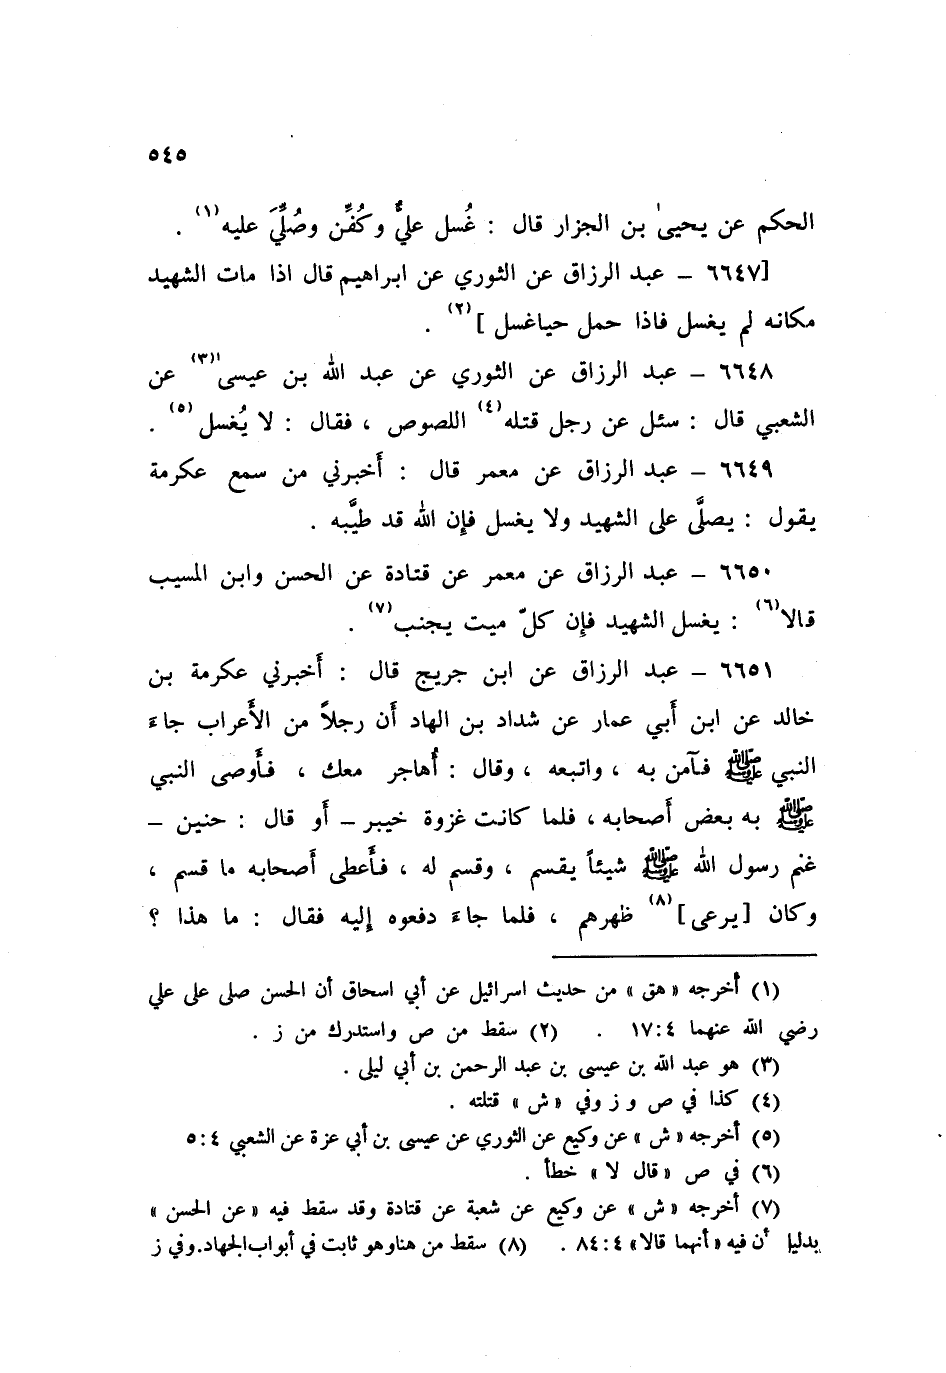 ٥٤٥
الحكم عن يحيىٰ بن الجزار قال : غُسل عليٌّ وكُفِّن وصُلِّيَ عليه(١) .
[٦٦٤٧ – عبد الرزاق عن الثوري عن ابراهيم قال اذا مات الشهيد
مكانه لم يغسل فاذا حمل حياغسل ](٢) .
٦٦٤٨ – عبد الرزاق عن الثوري عن عبد الله بن عيسى(٣) عن
الشعبي قال : سئل عن رجل قتله(٤) اللصوص ، فقال : لا يُغسل(٥) .
٦٦٤٩ – عبد الرزاق عن معمر قال : أخبرني من سمع عكرمة
يقول : يصلَّى على الشهيد ولا يغسل فإن الله قد طيَّبه .
٦٦٥٠ – عبد الرزاق عن معمر عن قتادة عن الحسن وابن المسيب
قالا(٦) : يغسل الشهيد فإن كلّ ميت يجنب(٧) .
٦٦٥١ – عبد الرزاق عن ابن جريج قال : أخبرني عكرمة بن
خالد عن ابن أبي عمار عن شداد بن الهاد أن رجلاً من الأعراب جاء
النبي ﷺ فآمن به ، واتبعه ، وقال : أُهاجر معك ، فأوصى النبي
ﷺ به بعض أصحابه ، فلما كانت غزوة خيبر – أو قال : حنين –
غنم رسول الله ﷺ شيئاً يقسم ، وقسم له ، فأعطى أصحابه ما قسم ،
وكان [يرعى](٨) ظهرهم ، فلما جاء دفعوه إليه فقال : ما هذا ؟
(١) أخرجه «هق» من حديث اسرائيل عن أبي اسحاق أن الحسن صلى على علي
رضي الله عنهما ١٧:٤ . (٢) سقط من ص واستدرك من ز .
(٣) هو عبد الله بن عيسى بن عبد الرحمن بن أبي ليلى .
(٤) كذا في ص و ز وفي «ش» قتلته .
(٥) أخرجه «ش» عن وكيع عن الثوري عن عيسى بن أبي عزة عن الشعبي ٥:٤
(٦) في ص «قال لا» خطأ .
(٧) أخرجه «ش» عن وكيع عن شعبة عن قتادة وقد سقط فيه «عن الحسن»
بدليل أن فيه «أنهما قالا» ٨٤:٤ . (٨) سقط من هناوهو ثابت في أبواب الجهاد.وفي ز